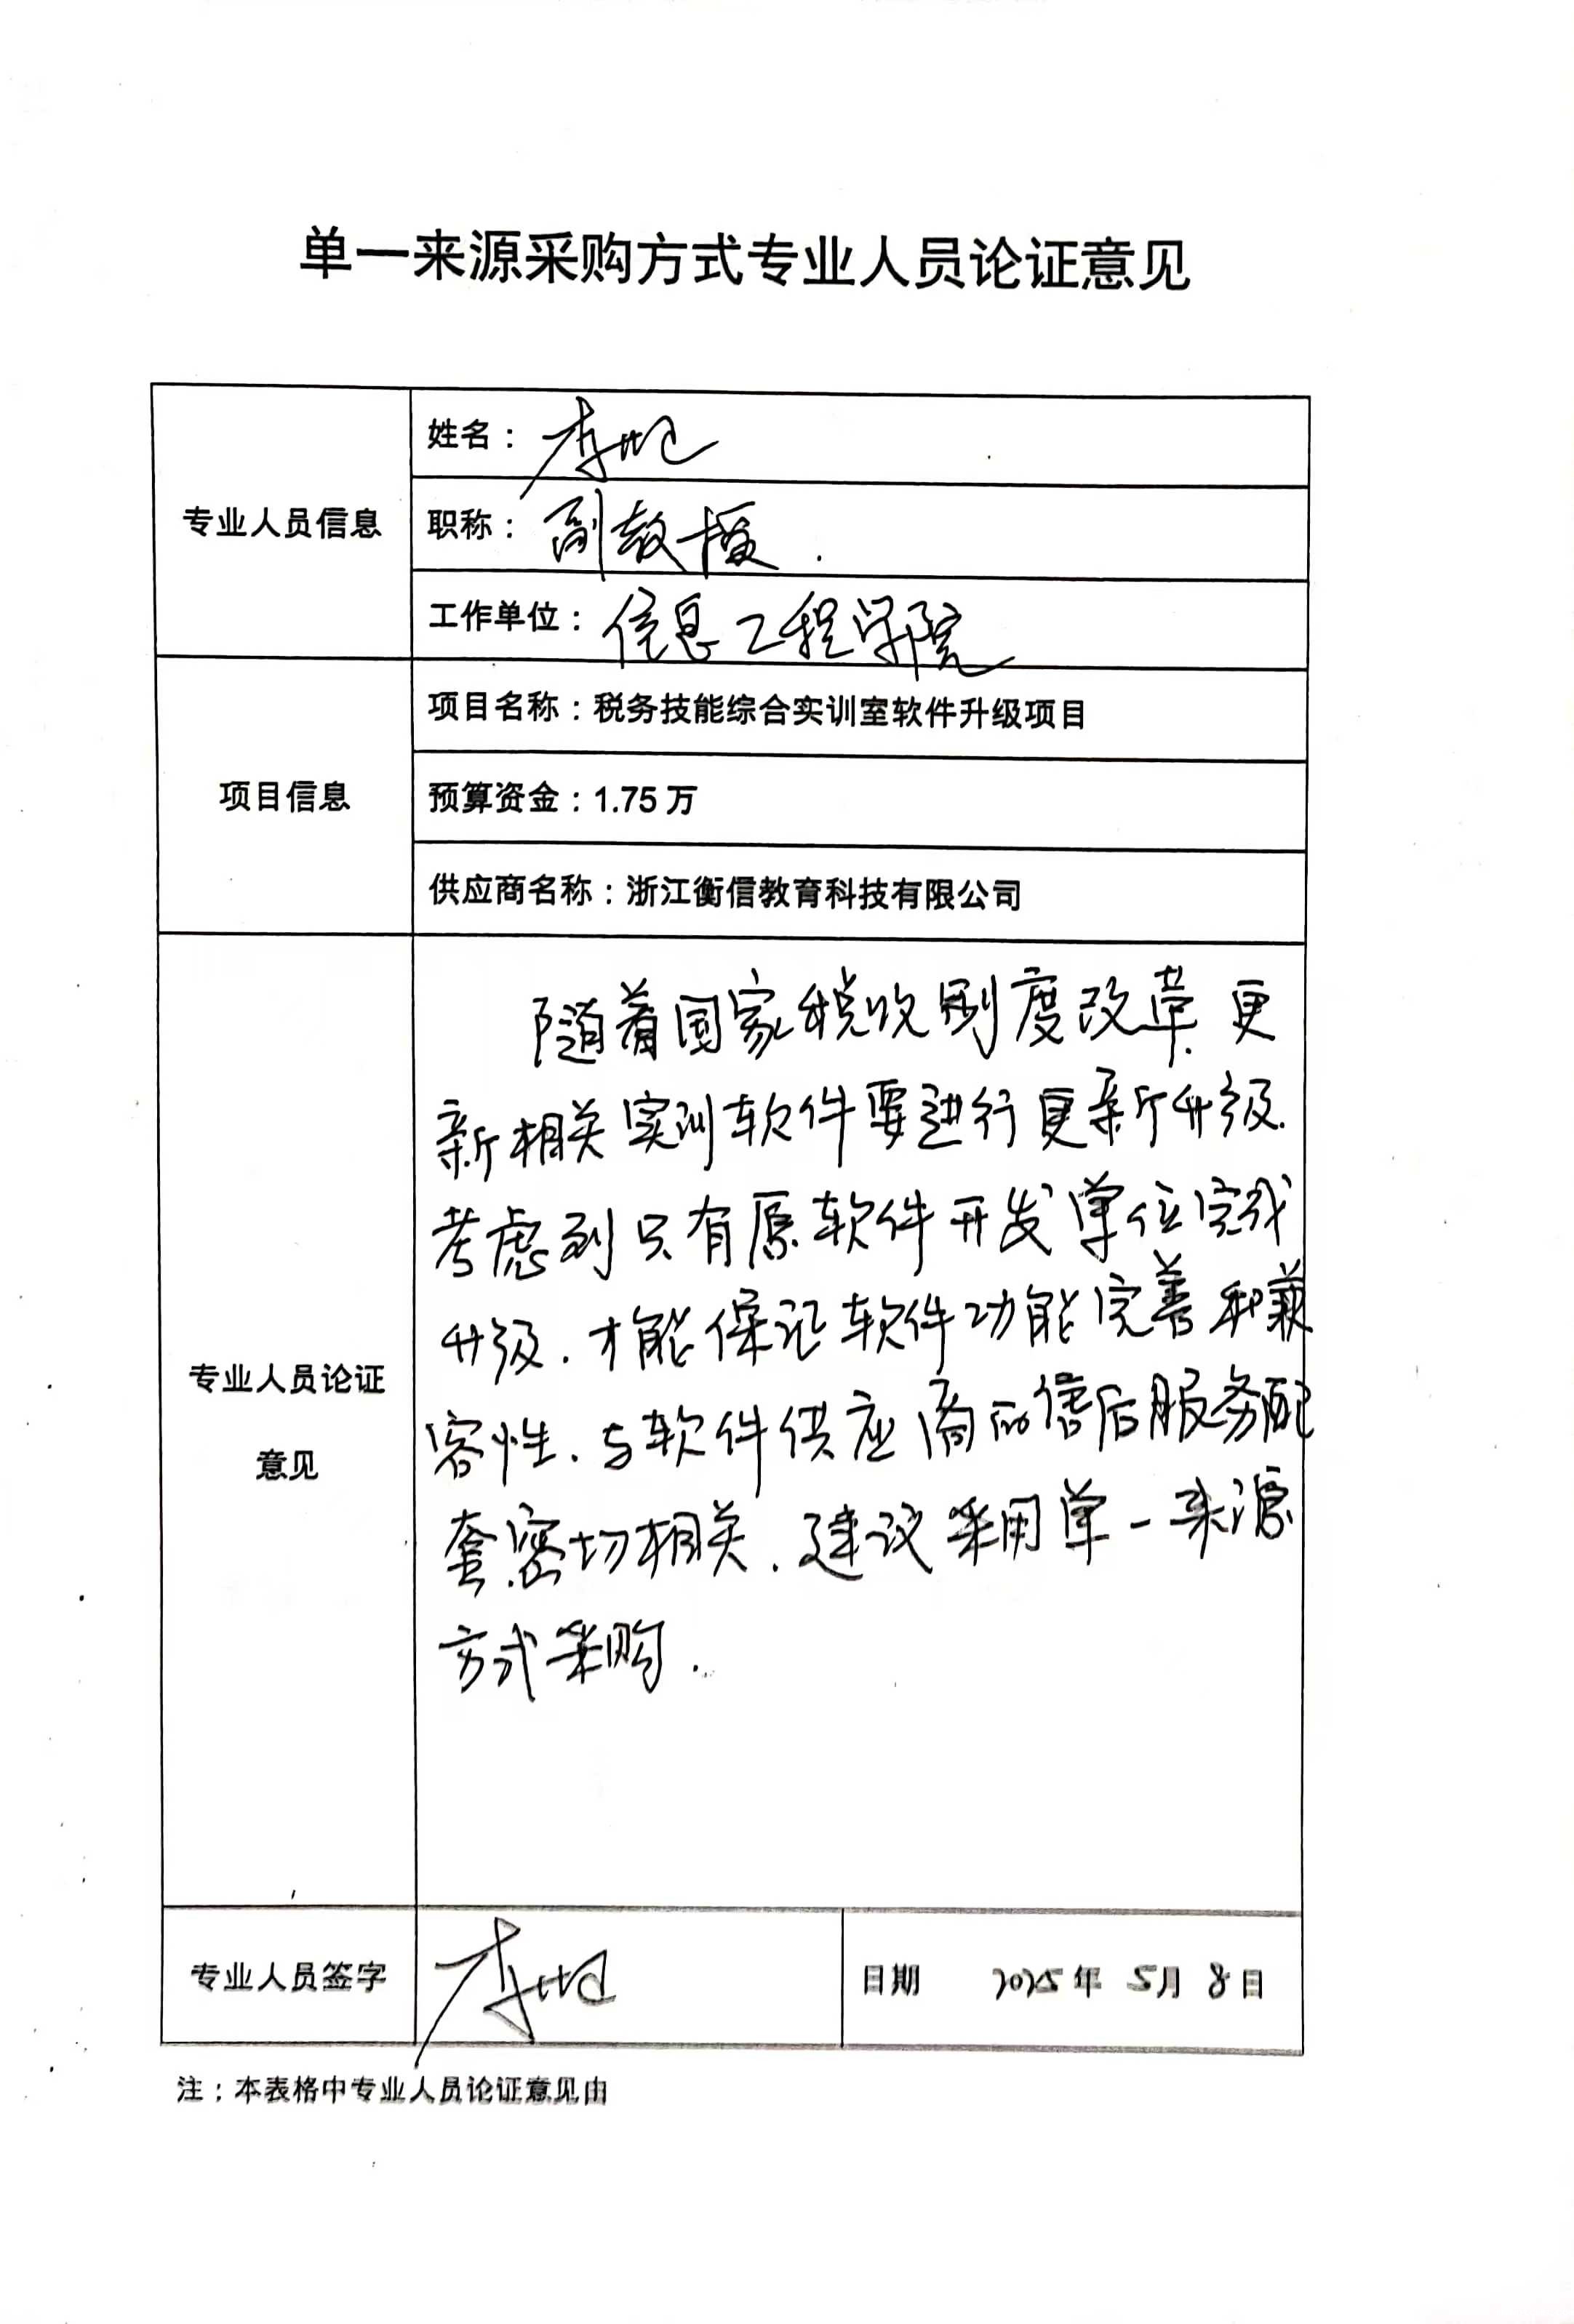 单一来源采购方式专业人员论证意见
专业人员信息
姓名：李
职称：副教授.
工作单位：信息工程学院
项目信息
项目名称：税务技能综合实训室软件升级项目
预算资金：1.75万
供应商名称：浙江衡信教育科技有限公司
专业人员论证
意见
随着国家税收制度改革.更
新相关实训软件要进行更新升级.
考虑到只有原软件开发单位完成
升级.才能保证软件功能完善和兼
容性.与软件供应商的售后服务配
套密切相关.建议采用单一来源
方式采购.
专业人员签字
李
日期 2025年5月8日
注：本表格中专业人员论证意见由